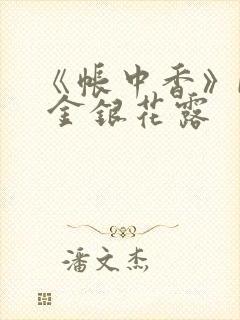 《帐中香》
金银花露
潘文杰